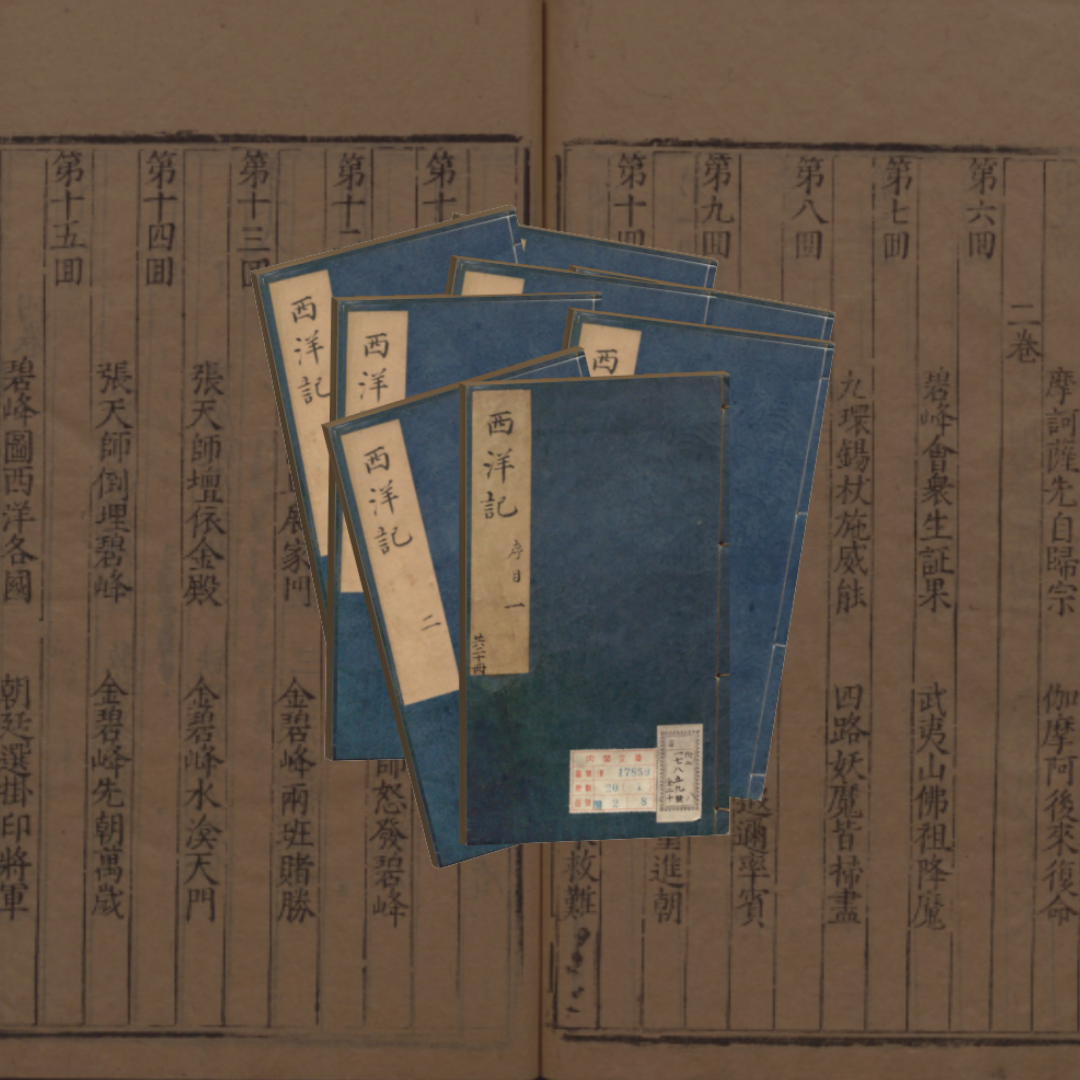 摩訶薩先自歸宗 伽摩阿後來復命
二卷
第六囬
碧峰會衆生証果 武夷山佛祖降魔
第七囬
九環錫杖施威能 四路妖魔皆掃盡
第八囬
邇率賓
第九囬
進朝
第十囬
救難
第十
師怒發碧峰
第十二
展家門 金碧峰兩班賭勝
第十三囬
張天師壇依金殿 金碧峰水渰天門
第十四囬
張天師倒埋碧峰 金碧峰先朝萬歲
第十五囬
碧峰圖西洋各國 朝廷選掛印將軍
西洋記 序目 一
共二十冊
西洋記 二
西洋
西洋記
西
內閣文庫
17859
20
一七八五九號